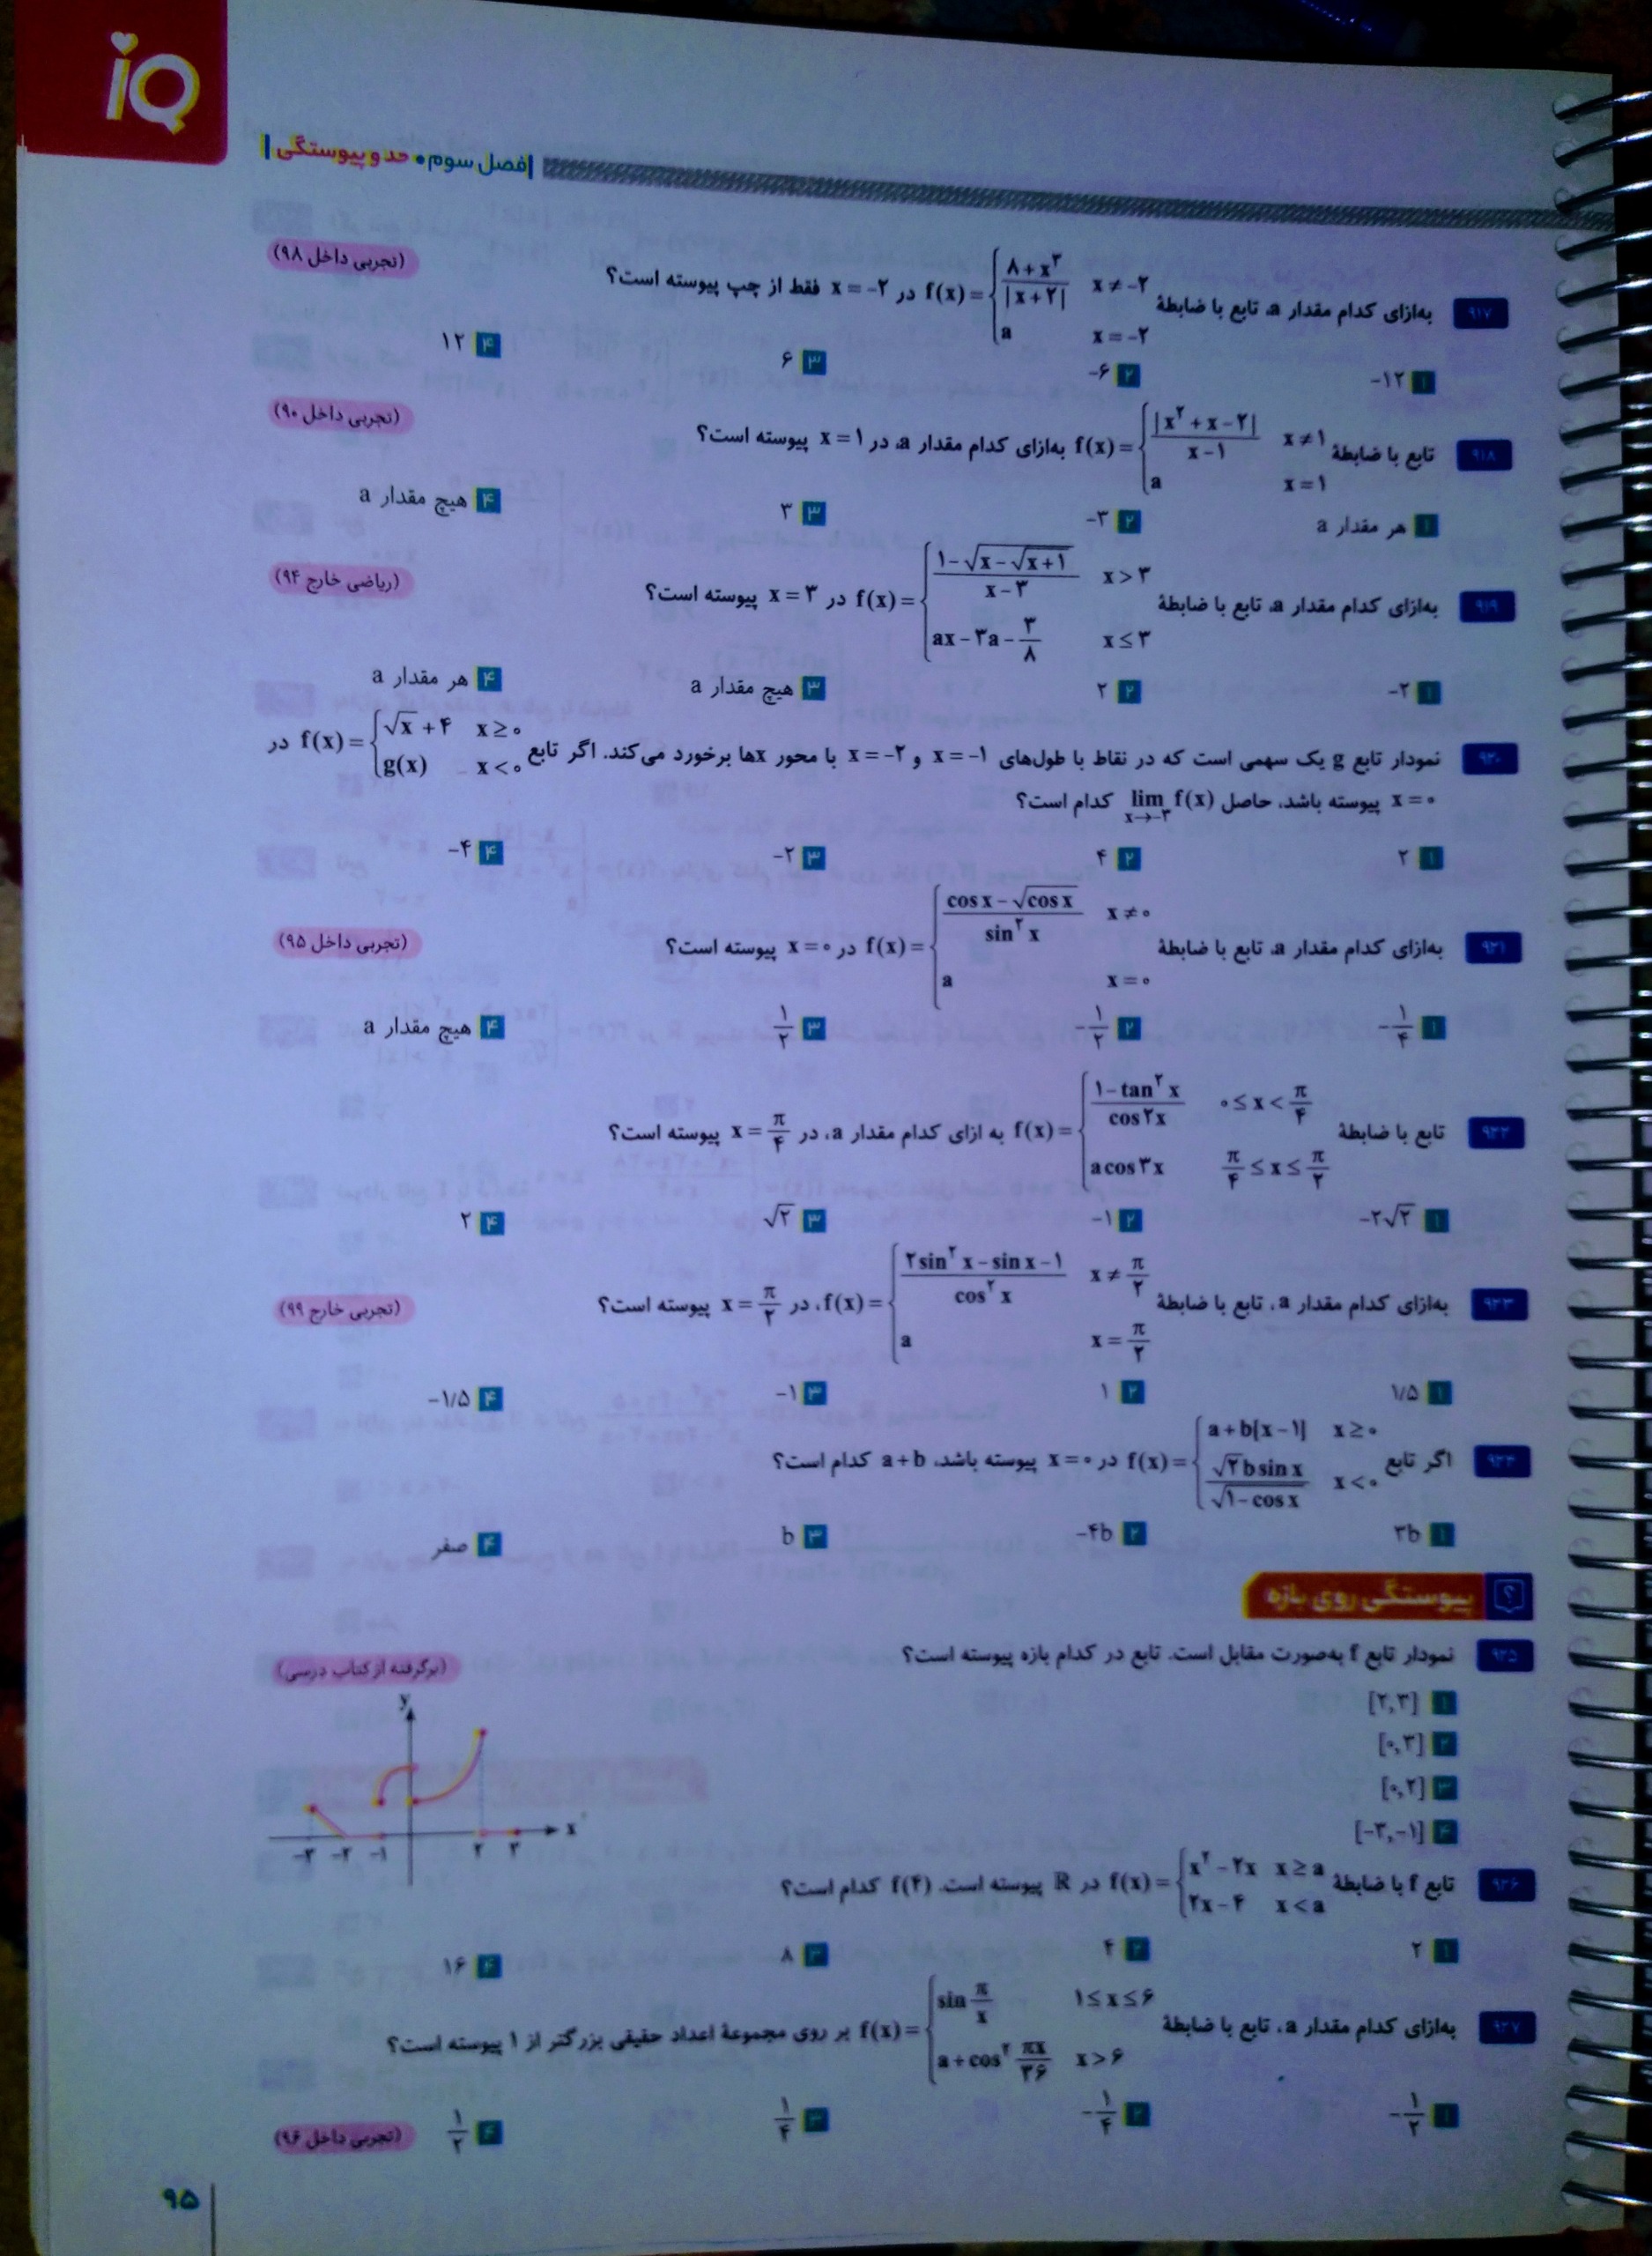 iQ
فصل سوم • حد و پیوستگی
۹۱۷ به‌ازای کدام مقدار a، تابع با ضابطهٔ f(x) = { (۸+x^۳)/|x+۲| x≠-۲ ; a x=-۲ در x=-۲ فقط از چپ پیوسته است؟ (تجربی داخل ۹۸)
۱ -۱۲ ۲ -۶ ۳ ۶ ۴ ۱۲
۹۱۸ تابع با ضابطهٔ f(x) = { |x^۲+x-۲|/(x-۱) x≠۱ ; a x=۱ به‌ازای کدام مقدار a، در x=۱ پیوسته است؟ (تجربی داخل ۹۰)
۱ هر مقدار a ۲ -۳ ۳ ۳ ۴ هیچ مقدار a
۹۱۹ به‌ازای کدام مقدار a، تابع با ضابطهٔ f(x) = { (۱-√(x-√(x+۱)))/(x-۳) x>۳ ; ax-۳a-۳/۸ x≤۳ در x=۳ پیوسته است؟ (ریاضی خارج ۹۴)
۱ -۲ ۲ ۲ ۳ هیچ مقدار a ۴ هر مقدار a
۹۲۰ نمودار تابع g یک سهمی است که در نقاط با طول‌های x=-۱ و x=-۲ با محور xها برخورد می‌کند. اگر تابع f(x) = { √x+۴ x≥۰ ; g(x) x<۰ در
x=۰ پیوسته باشد، حاصل lim f(x) x→-۳ کدام است؟
۱ ۲ ۲ ۴ ۳ -۲ ۴ -۴
۹۲۱ به‌ازای کدام مقدار a، تابع با ضابطهٔ f(x) = { (cos x-√cos x)/sin^۲ x x≠۰ ; a x=۰ در x=۰ پیوسته است؟ (تجربی داخل ۹۵)
۱ -۱/۴ ۲ -۱/۲ ۳ ۱/۲ ۴ هیچ مقدار a
۹۲۲ تابع با ضابطهٔ f(x) = { (۱-tan^۲ x)/cos ۲x ۰≤x<π/۴ ; a cos ۳x π/۴≤x≤π/۲ به ازای کدام مقدار a، در x=π/۴ پیوسته است؟
۱ -۲√۲ ۲ -۱ ۳ √۲ ۴ ۲
۹۲۳ به‌ازای کدام مقدار a، تابع با ضابطهٔ f(x) = { (۲sin^۲ x-sin x-۱)/cos^۲ x x≠π/۲ ; a x=π/۲، در x=π/۲ پیوسته است؟ (تجربی خارج ۹۹)
۱ ۱/۵ ۲ ۱ ۳ -۱ ۴ -۱/۵
۹۲۴ اگر تابع f(x) = { a+b[x-۱] x≥۰ ; √۲ b sin x/√(۱-cos x) x<۰ در x=۰ پیوسته باشد، a+b کدام است؟
۱ ۳b ۲ -۴b ۳ b ۴ صفر
پیوستگی روی بازه
۹۲۵ نمودار تابع f به‌صورت مقابل است. تابع در کدام بازه پیوسته است؟ (برگرفته از کتاب درسی)
۱ [۲,۳]
۲ [۰,۳]
۳ [۰,۲]
۴ [-۳,-۱]
y
x
-۳ -۲ -۱ ۲ ۳
۹۲۶ تابع f با ضابطهٔ f(x) = { x^۲-۲x x≥a ; ۲x-۴ x<a در ℝ پیوسته است. f(۴) کدام است؟
۱ ۲ ۲ ۴ ۳ ۸ ۴ ۱۶
۹۲۷ به‌ازای کدام مقدار a، تابع با ضابطهٔ f(x) = { sin π/x ۱≤x≤۶ ; a+cos^۲ πx/۳۶ x>۶ بر روی مجموعهٔ اعداد حقیقی بزرگتر از ۱ پیوسته است؟
۱ -۱/۲ ۲ -۱/۴ ۳ ۱/۴ ۴ ۱/۲ (تجربی داخل ۹۶)
۹۵